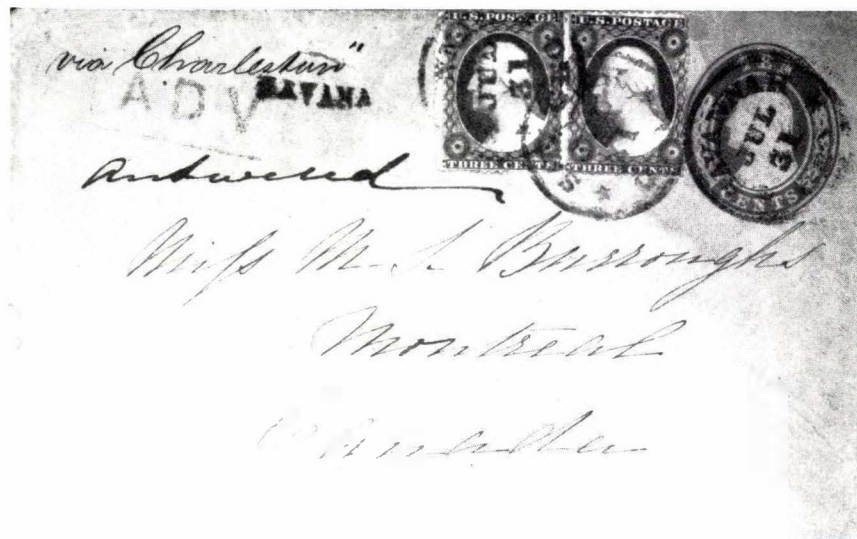 via Charleston"
ADV
HAVANA
U.S. POSTAGE
THREE CENTS
JUL
31
U.S. POSTAGE
THREE CENTS
SAVANNAH
JUL
31
CENTS
answered
Miss M. S. Burroughs
Montreal
Canada